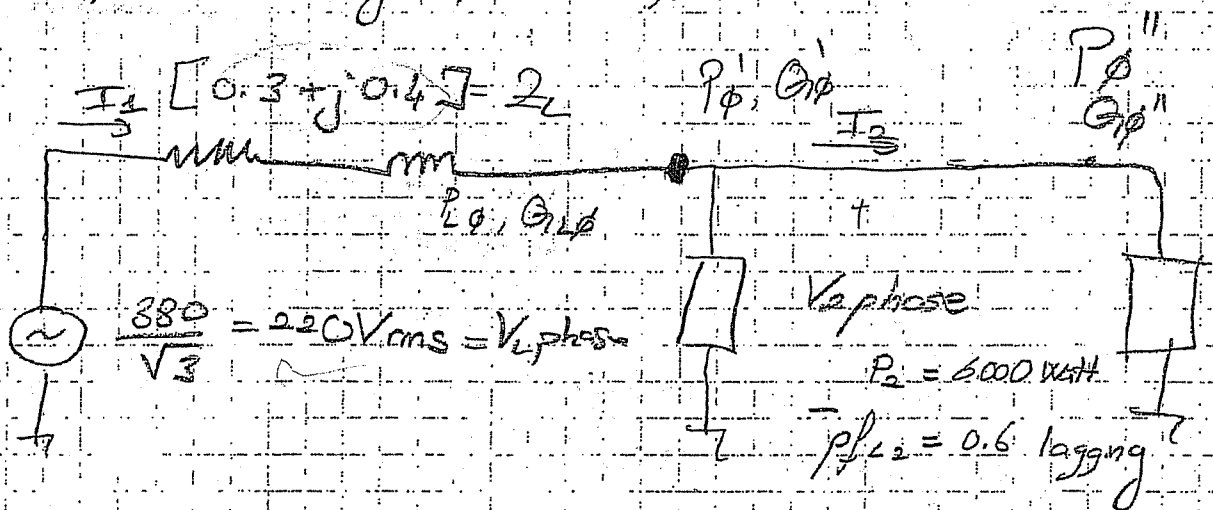 I1 [0.3 + j 0.4] = ZL
P'ø, Q'ø
I2
Pø''
Qø''
PLø, QLø
+
380/√3 = 220 Vrms = V1 phase
V2 phase
P2 = 6000 watt
-
pf L2 = 0.6 lagging